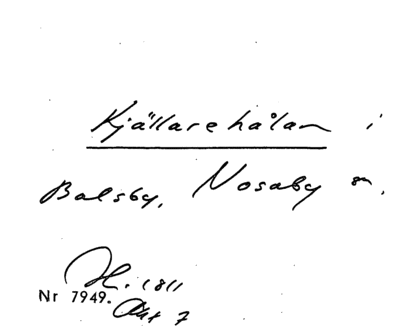 Kjällarehålan i
Balsby, Nosaby sn.
H. 1811
Nr 7949. Akt 7